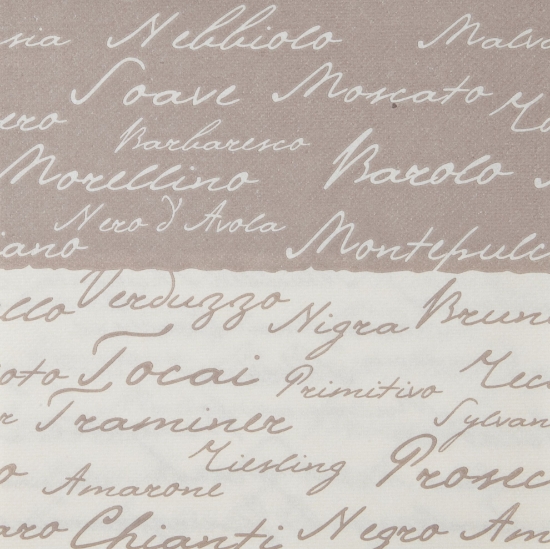 sia Nebbiolo Malva
Soave Moscato
ero Barbaresco
Morellino Barolo
Nero d'Avola
iano Montepulc
ello Verduzzo Nigra Brun
oto Tocai Primitivo
r Traminer Sylvan
Riesling Prosec
o Amarone
aro Chianti Negro Am